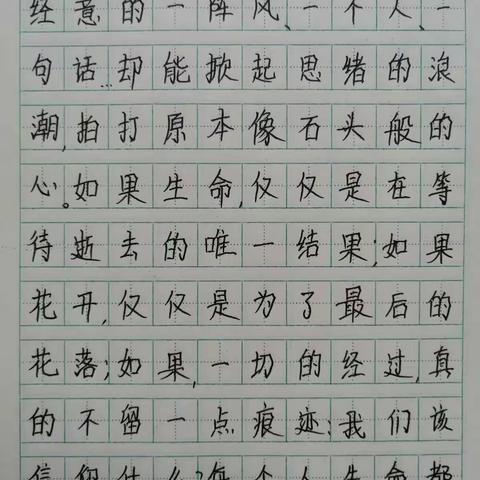 经意的一阵风、一个人、一
句话…却能掀起思绪的浪
潮,拍打原本像石头般的
心。如果生命,仅仅是在等
待逝去的唯一结果;如果
花开,仅仅是为了最后的
花落;如果,一切的经过,真
的不留一点痕迹;我们该
信仰什么?每个人生命都